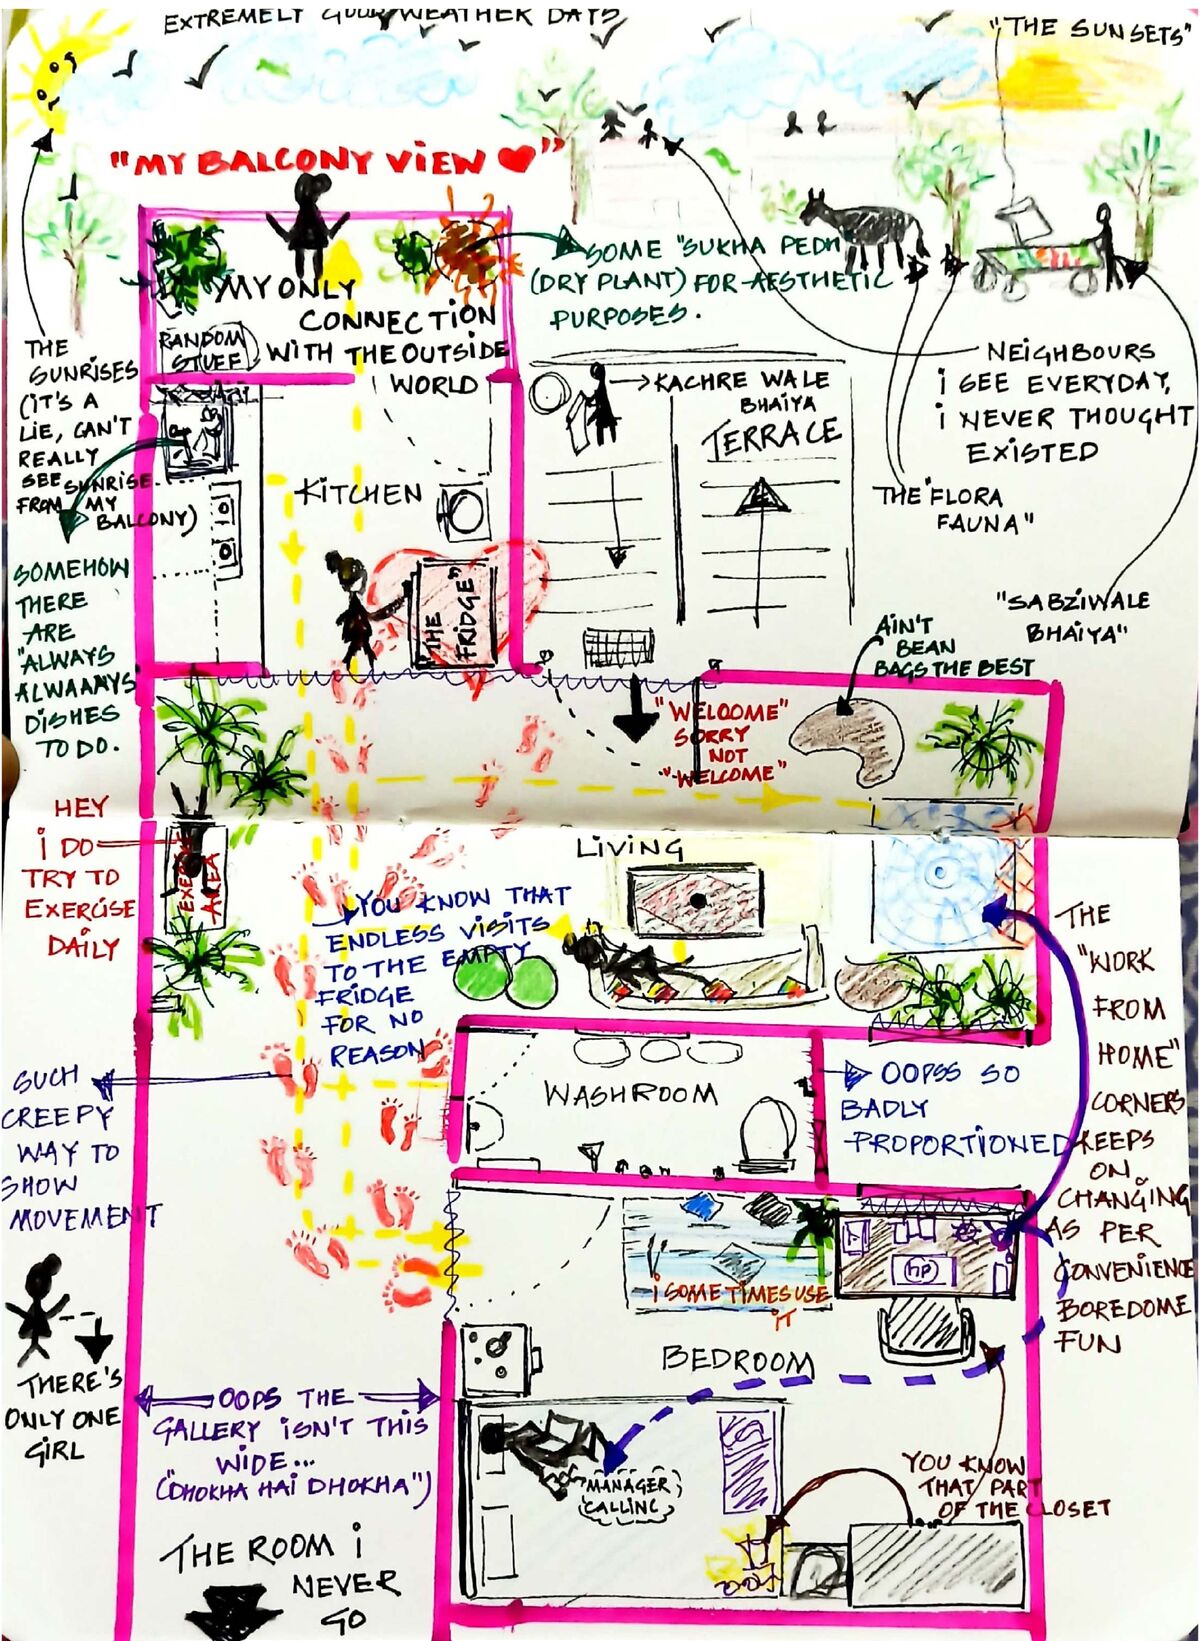 EXTREMELY GOOD WEATHER DAYS
"THE SUNSETS"
"MY BALCONY VIEW ♥"
SOME "SUKHA PEDH"
(DRY PLANT) FOR AESTHETIC
PURPOSES.
MY ONLY
CONNECTION
WITH THE OUTSIDE
WORLD
RANDOM
STUFF
THE
SUNRISES
(IT'S A
LIE, CAN'T
REALLY
SEE SUNRISE
FROM MY
BALCONY)
KACHRE WALE
BHAIYA
TERRACE
NEIGHBOURS
I SEE EVERYDAY,
I NEVER THOUGHT
EXISTED
THE "FLORA
FAUNA"
"SABZIWALE
BHAIYA"
KITCHEN
"THE
FRIDGE"
SOMEHOW
THERE
ARE
"ALWAYS
ALWAAAYS"
DISHES
TO DO.
AIN'T
BEAN
BAGS THE BEST
"WELCOME"
SORRY
NOT
"WELCOME"
HEY
I DO
TRY TO
EXERCISE
DAILY
EXERCISE
AREA
LIVING
YOU KNOW THAT
ENDLESS VISITS
TO THE EMPTY
FRIDGE
FOR NO
REASON
THE
"WORK
FROM
HOME"
CORNERS
KEEPS
ON
CHANGING
AS PER
CONVENIENCE
BOREDOME
FUN
SUCH
CREEPY
WAY TO
SHOW
MOVEMENT
WASHROOM
OOPSS SO
BADLY
PROPORTIONED
I SOMETIMES USE
IT
hp
BEDROOM
THERE'S
ONLY ONE
GIRL
OOPS THE
GALLERY ISN'T THIS
WIDE...
("DHOKHA HAI DHOKHA")
MANAGER
CALLING
YOU KNOW
THAT PART
OF THE CLOSET
THE ROOM I
NEVER
GO